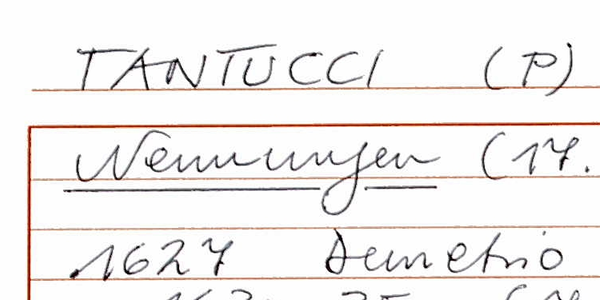 TANTUCCI (P)
Nennungen (17.
1627 Demetrio